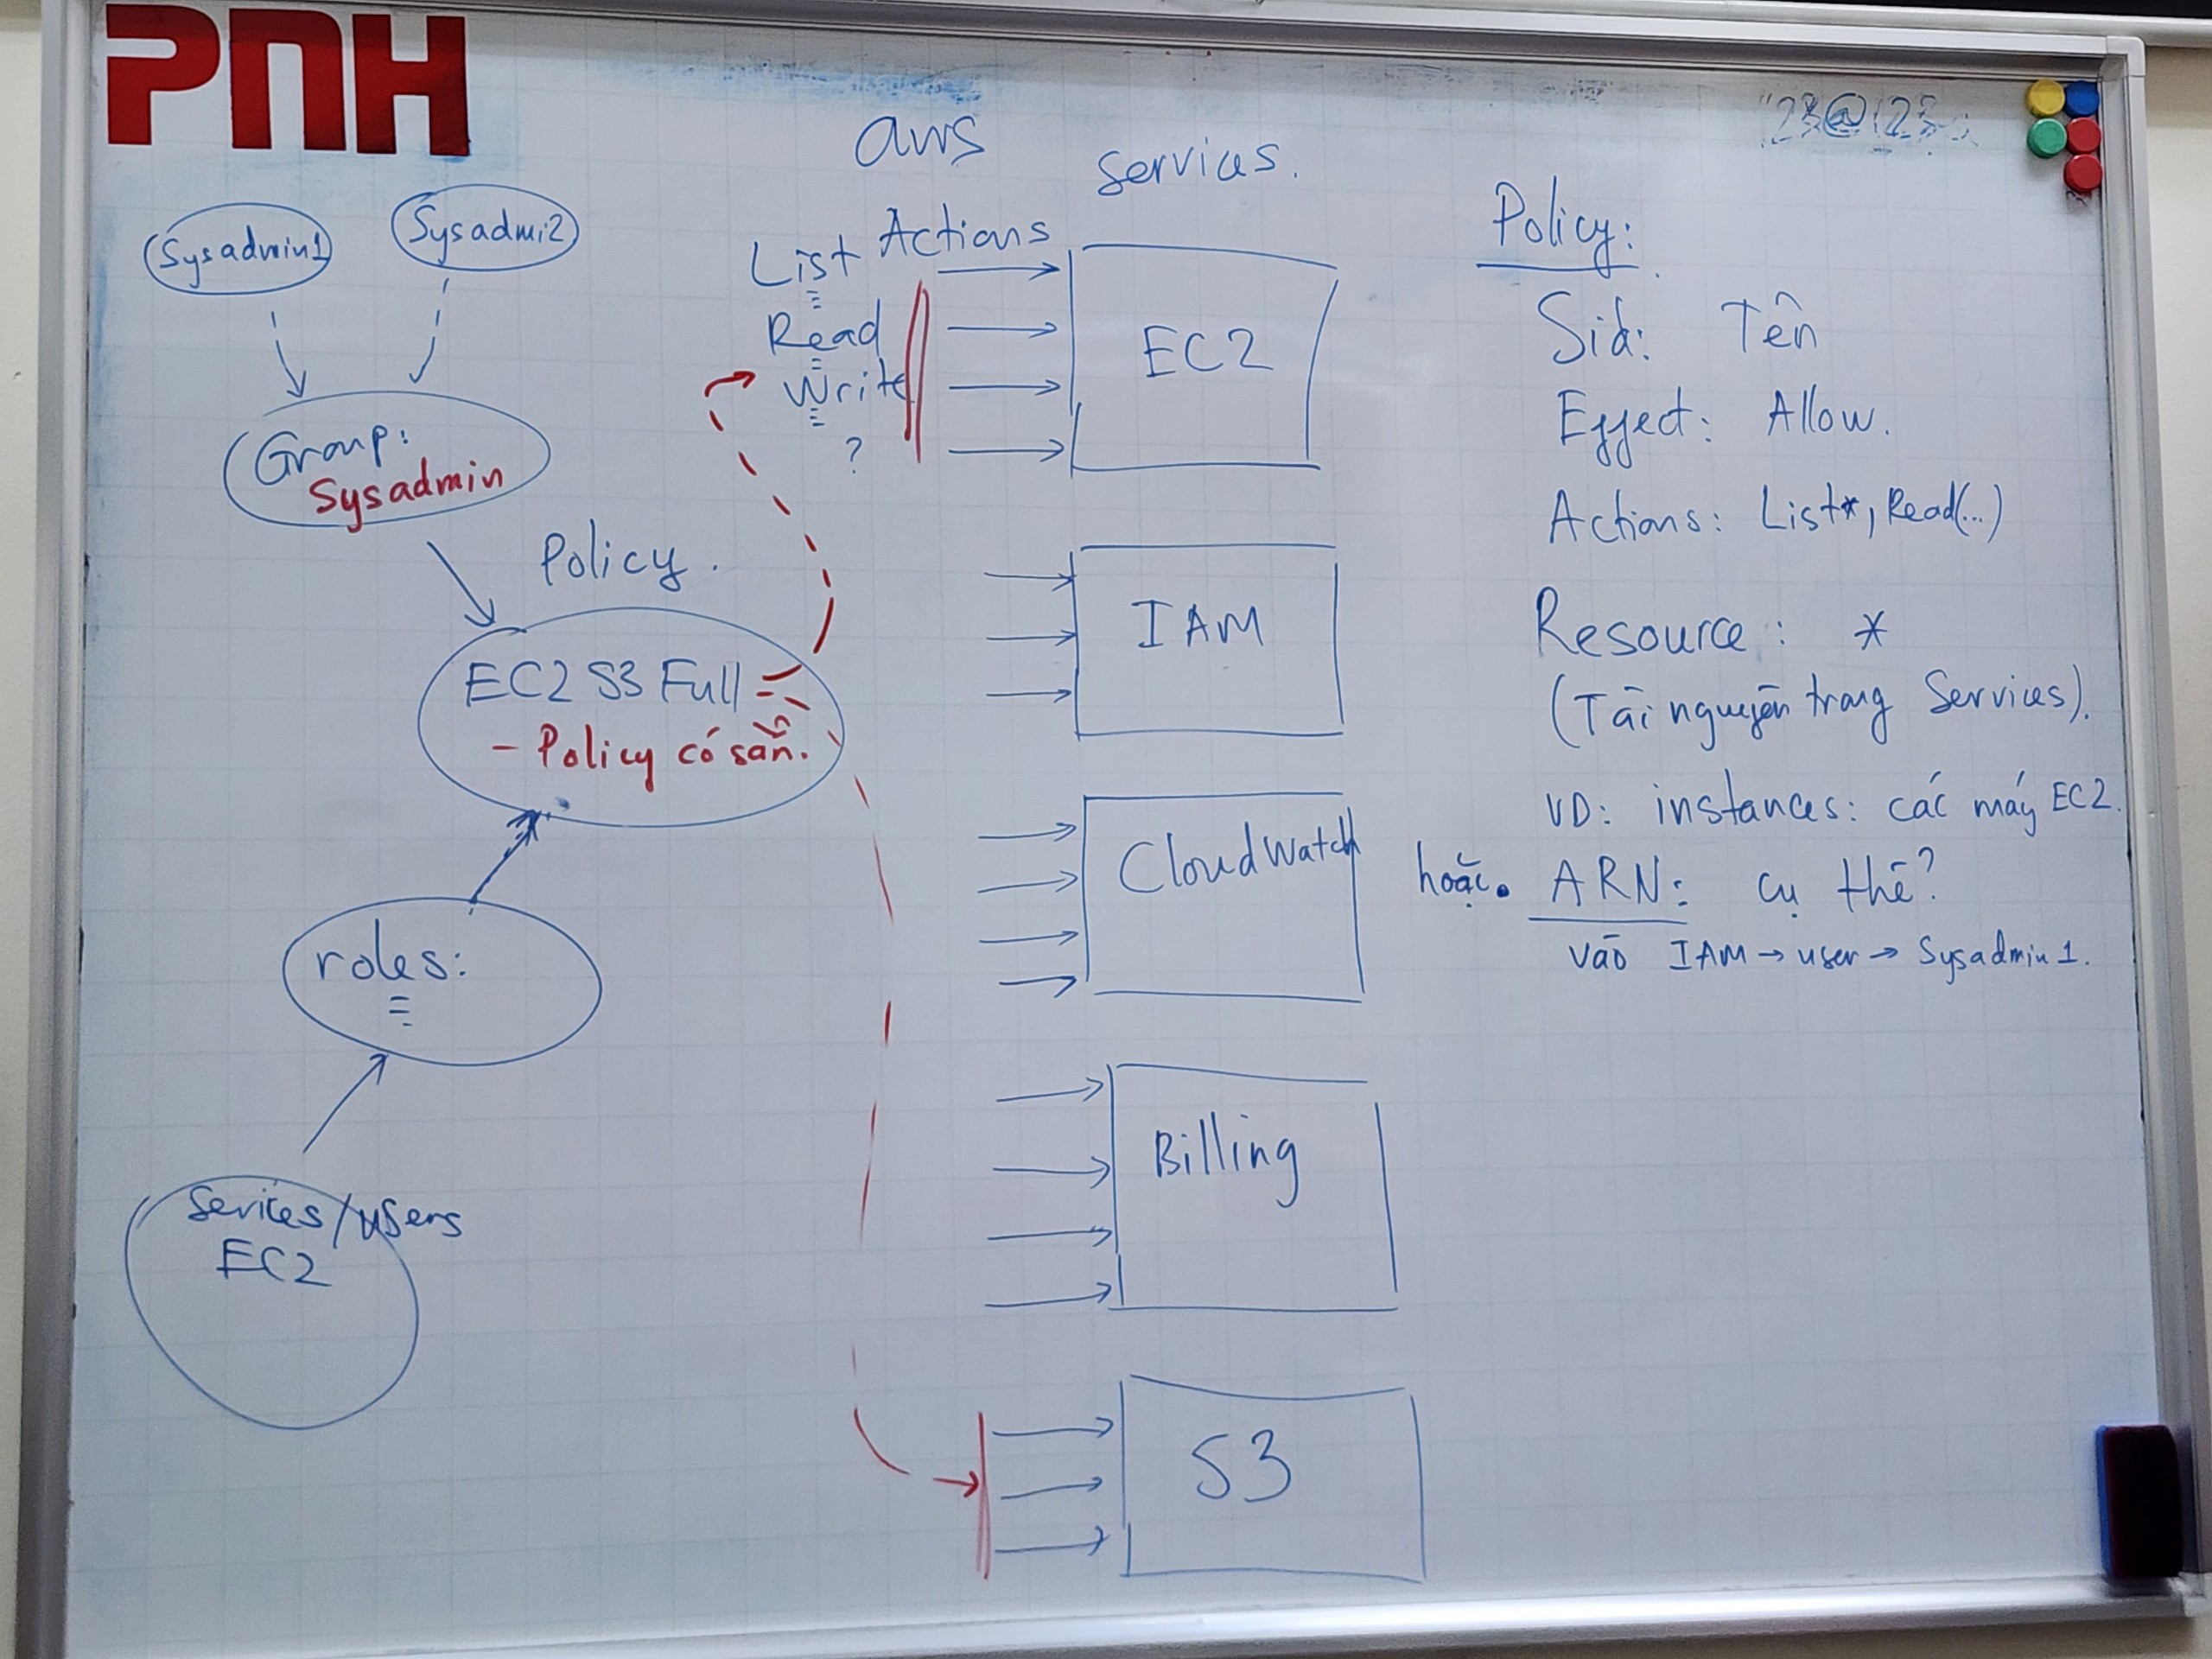 PNH
aws
services.
Sysadmin1
Sysadmi2
Group:
Sysadmin
Policy.
EC2 S3 Full
- Policy có sẵn.
roles:
Sevices/users
EC2
Actions
List
Read
Write
?
EC2
IAM
CloudWatch
Billing
S3
Policy:
Sid: Tên
Effect: Allow.
Actions: List*, Read(...)
Resource: *
(Tài nguyên trong Services).
VD: instances: các máy EC2.
hoặc. ARN: cụ thể?
vào IAM → user → Sysadmin1.